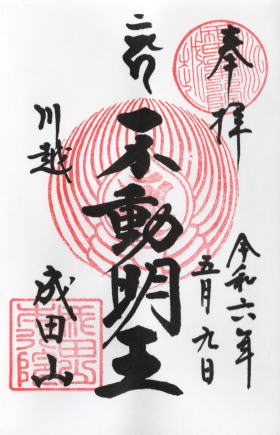 奉拝
令和六年
五月九日
不動明王
川越
成田山